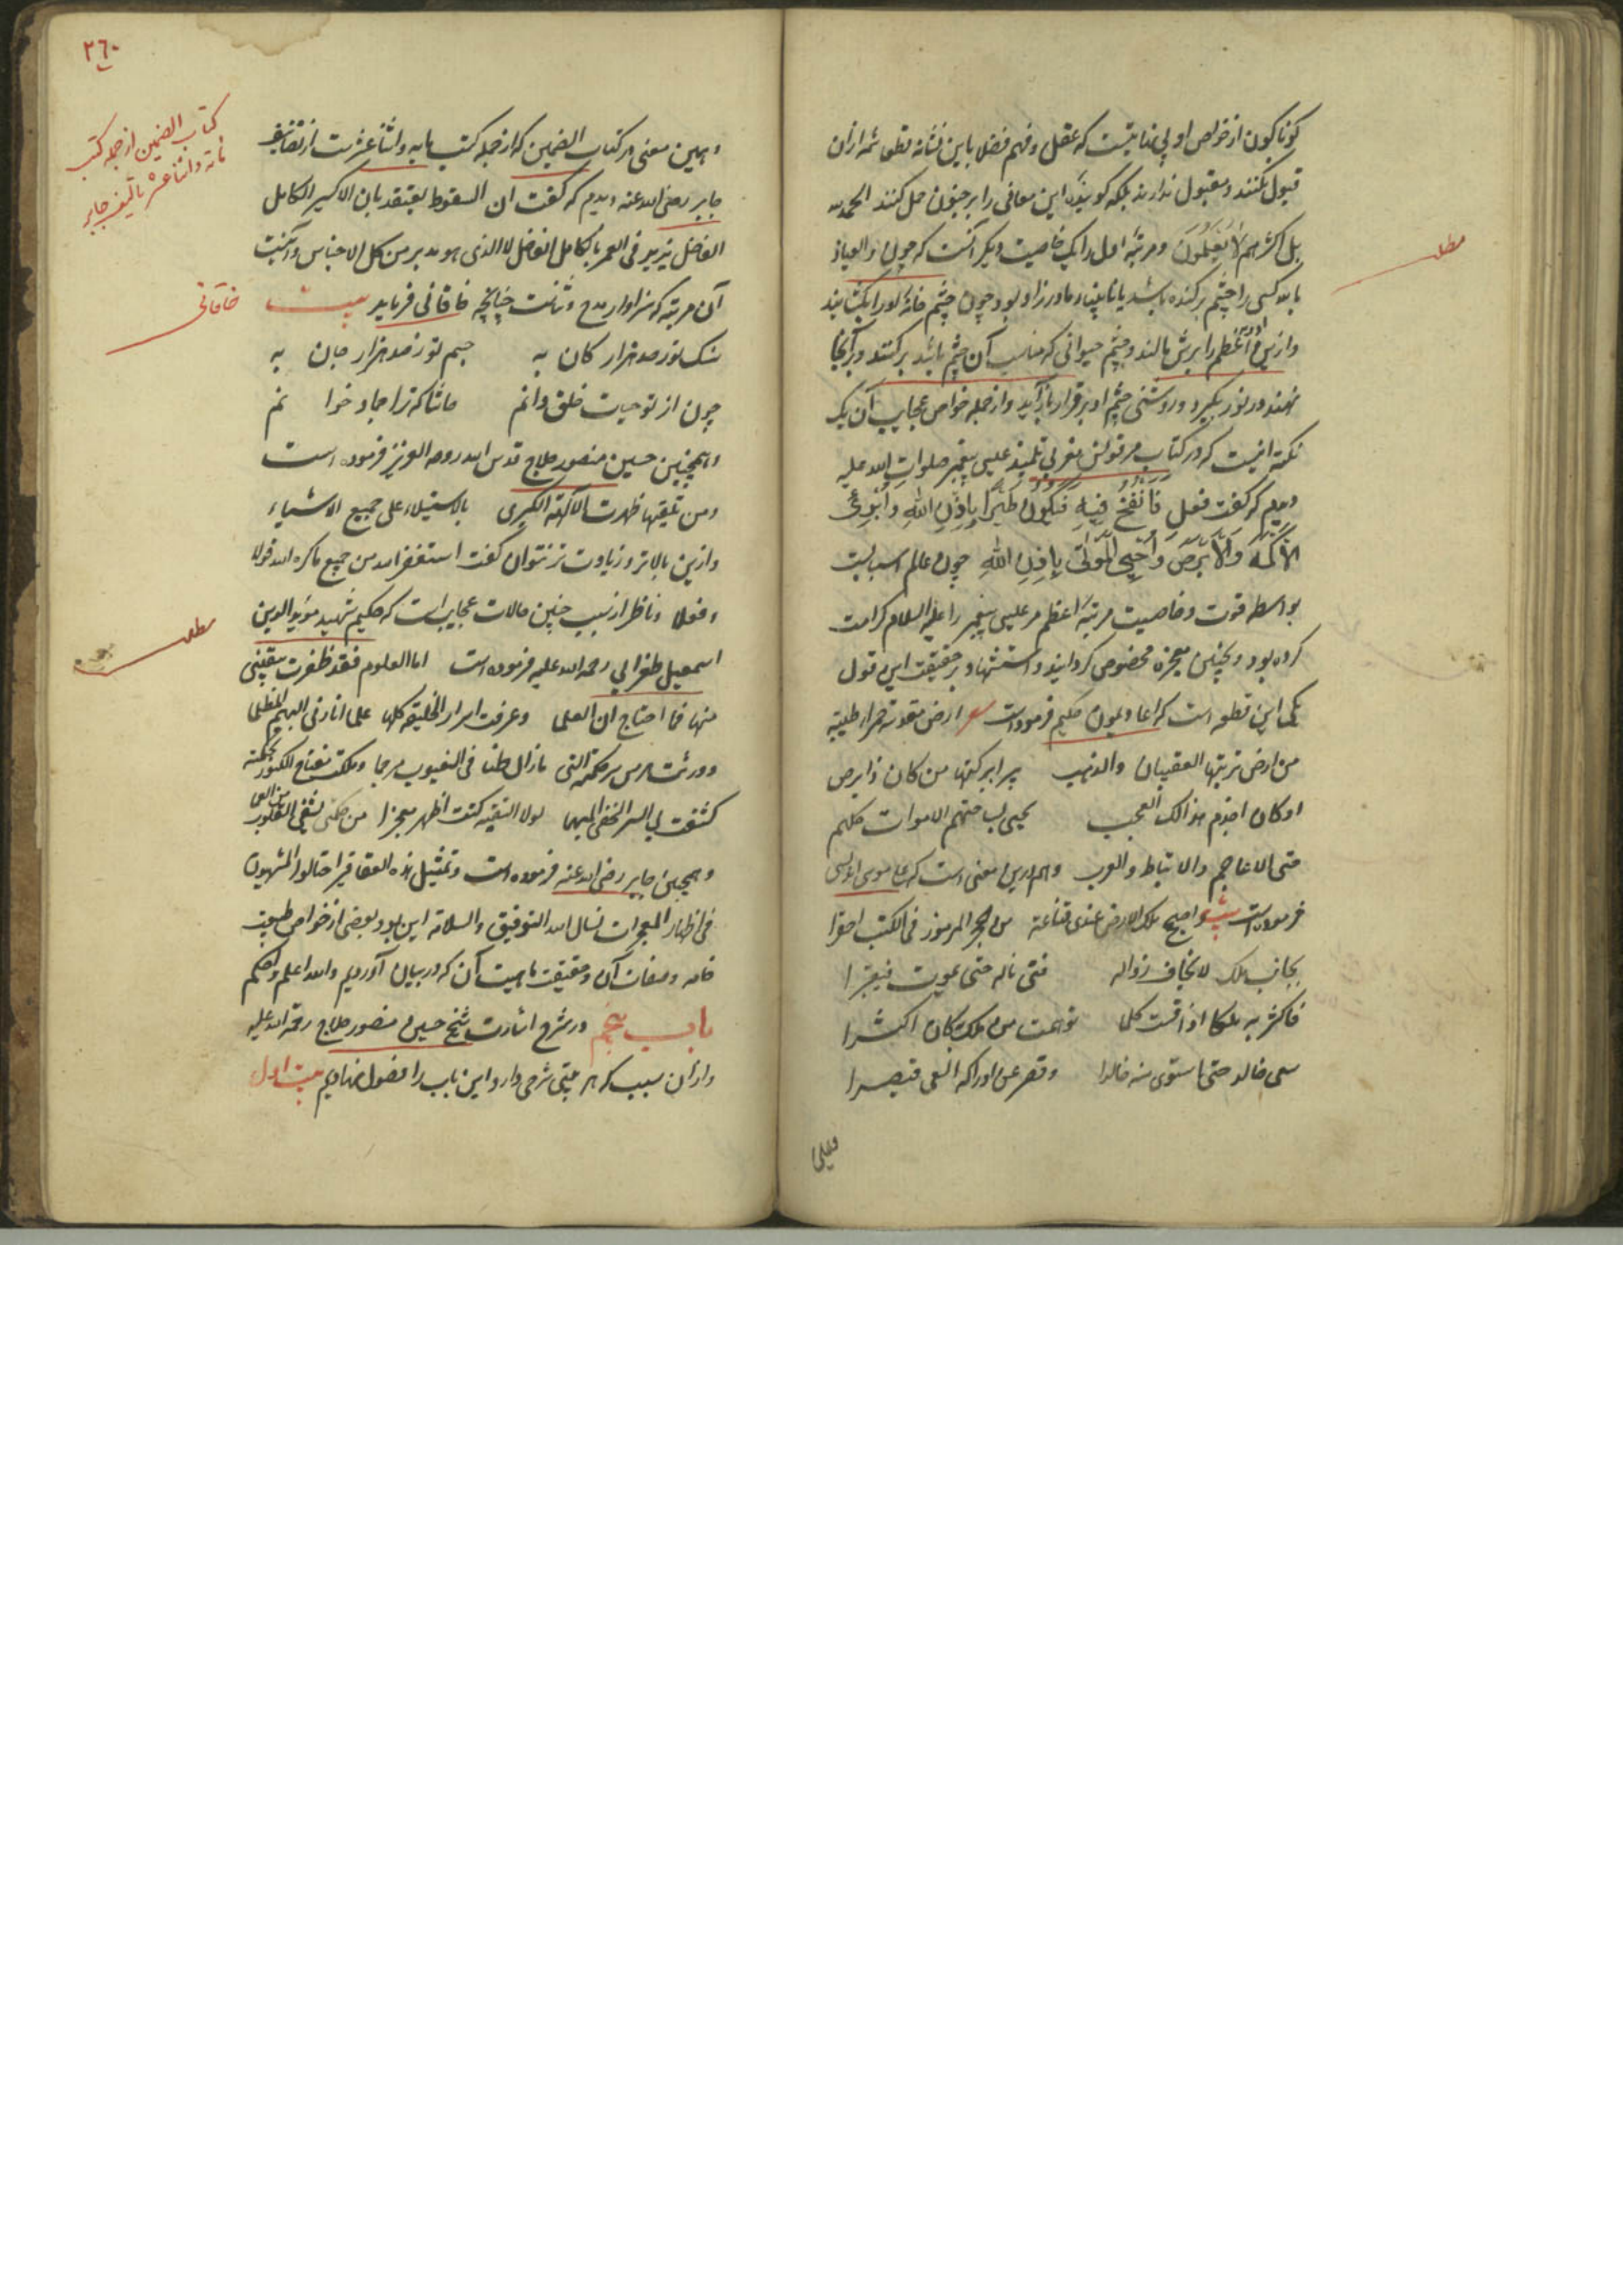 گوناکون از خواص او بی نهایتست که عقل و فهم فضلا باین نشانه قطعا شمه ازان
قبول نکنند و مقبول ندارند بلکه کویند این معانی را بر جنون حمل کنند الحمد لله
بل اکثرهم لا یعلمون و مرتبه اول را یک خاصیت دیکر آنست که چون والعیاذ
بالله کسی را چشم برکنده باشد یا نابینا مادرزاد بود چون چشم خانه کور را بکشایند
وازین دوای اعظم را برش مالند و چشم حیوانی که مناسب آن چشم باشد برکنند و بر آنجا
نهند در نور بکیرد و روشنی چشم او برقرار باز آید و از جمله خواص عجایب آن یک
نکته اینست که در کتاب مرقونس مغربی تلمیذ عیسی پیغمبر صلوات الله علیه
دیدم که گفت فعل فانفخ فیه فیکون طیرا باذن الله و ابرئ
الاکمه والابرص و احیی الموتی باذن الله چون عالم اسبابست
بواسطه قوت و خاصیت مرتبه اعظم مر عیسی پیغمبر را علیه السلام کرامت
کرده بود و بچنین معجزه مخصوص کردانید و استشهاد بر حقیقت این قول
یکی این قطعه است که اغادیمون حکیم فرموده است شعر ارض مقدسة حمراء طیبة
من ارض تربتها العقیان والذهب یبرا برکتها من کان ذا برص
او کان اجذم هذا لک العجب یحیی بساحتهم الاموات کلهم
حتی الاعاجم والانباط والعرب وهم درین معنی است که علی موسی اندلسی
فرموده است بیت واصبح ملک الارض عندی قناعة من الحجر المرموز فی الکتب احقرا
بجانب ملک لا یخاف زواله فتی ناله حتی یموت فیقبرا
فاکثر به ملکا اذا قست کلما توهمت من ملک کان اکثرا
سعی خالد حتی استوی منه خالدا وقصر عن ادراکه الغی قیصرا
مطلب
وبهین معنی در کتاب الضمین که از جمله کتب مایه و اثنا عشرست از تصانیف
جابر رضی الله عنه دیدم که کفت ان السقوط یعتقد بان الاکسیر الکامل
الفاضل یزید فی العمر بالکامل الفاضل لا الذی هو مدبر من کل الاجناس و آنست
آن مرتبه که سزاوار مدح و ثناست چنانچه خاقانی فرماید بیت
سنک تو از صد هزار کان به جسم تو ز صد هزار جان به
چون از تو حیات خلق دانم حاشا که ترا جماد خوانم
وهمچنین حسین منصور حلاج قدس الله روحه العزیز فرموده است
ومن تحقیقها ظهرت الآلهة الکبری بالاستیلاء علی جمیع الاشیاء
وازین بالاتر و زیادت تر نتوان کفت استغفر الله من جمیع ما کره الله قولا
وفعلا و ناظر از سبب چنین حالات عجایب است که حکیم شهید مؤید الدین
اسمعیل طغرایی رحمة الله علیه فرموده است اما العلوم فقد ظفرت ببغیتی
منها فما احتاج ان اتعلما وعرفت اسرار الخلیقة کلها علما انار لی البهیم المظلما
وورثت هرمس سر حکمته التی ما زال ظنا فی الغیوب مرجما وملکت مفتاح الکنوز بحکمة
کشفت لی السر الخفی المبهما لولا التقیة کنت اظهر معجزا من حکمتی تشفی القلوب من العمی
وهمچنین جابر رضی الله عنه فرموده است وتمثیل هذه العقاقیر احتالوا المتنبیون
فی اظهار المعجزات نسال الله التوفیق والسلامة این بود بعضی از خواص طبیعت
خامه و صفات آن و حقیقت ماهیت آن که در بیان آوردیم والله اعلم واحکم
باب پنجم در شرح اشارت شیخ حسین منصور حلاج رحمة الله علیه
وازان سبب که هر بیتی شرحی دارد این باب را فصول نهادیم بیت اول
٢٦٠
کتاب الضمین از جمله کتب
مائة و اثنا عشر تالیف جابر
خاقانی
مطلب